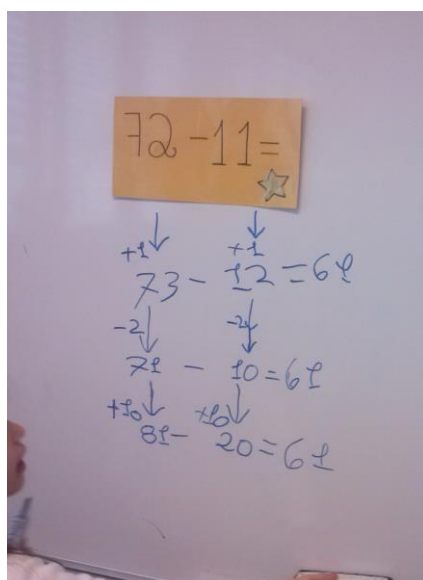 72 - 11 =
+1 +1
73 - 12 = 61
-2 -2
71 - 10 = 61
+10 +10
81 - 20 = 61